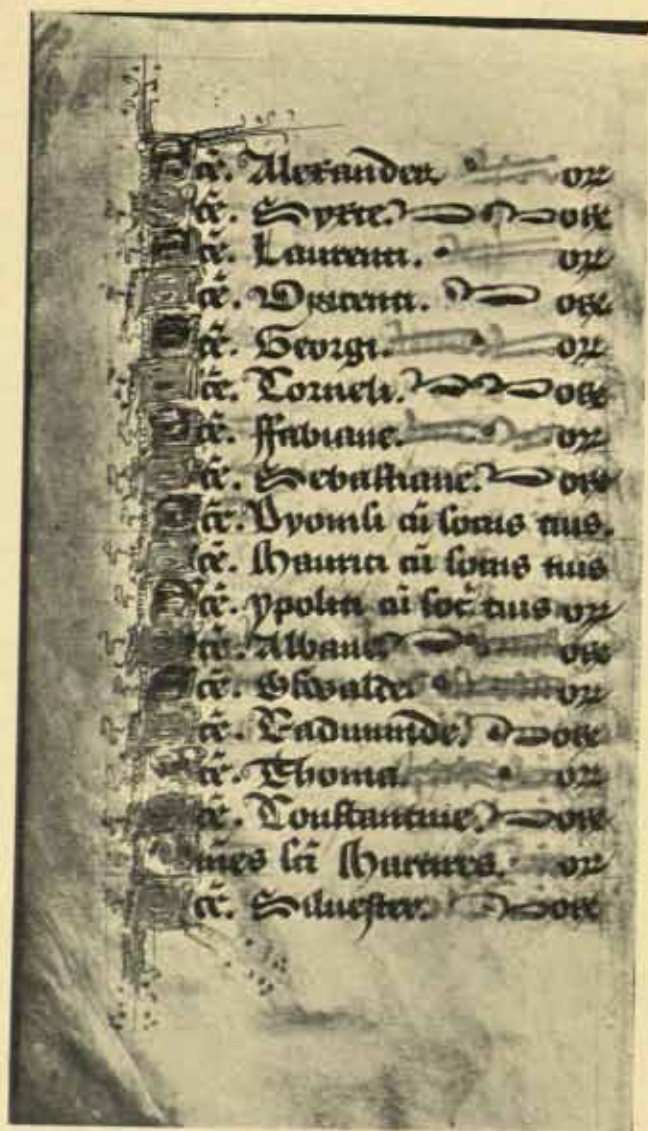 Scē. Alexander. or
Scē. Syxte. ore
Scē. Laurenti. or
Scē. Vincenti. ore
Scē. Georgi. or
Scē. Corneli. ore
Scē. ffabiane. or
Scē. Sebastiane. ore
Scē. Dyonisi cū sociis tuis.
Scē. Maurici cū sociis tuis
Scē. ypoliti cū soc̄ tuis or
Scē. Albane. ore
Scē. Oswalde. or
Scē. Eadmunde. ore
Scē. Thoma. or
Scē. Constantine. ore
Omēs sc̄i Martires. or
Scē. Siluester. ore